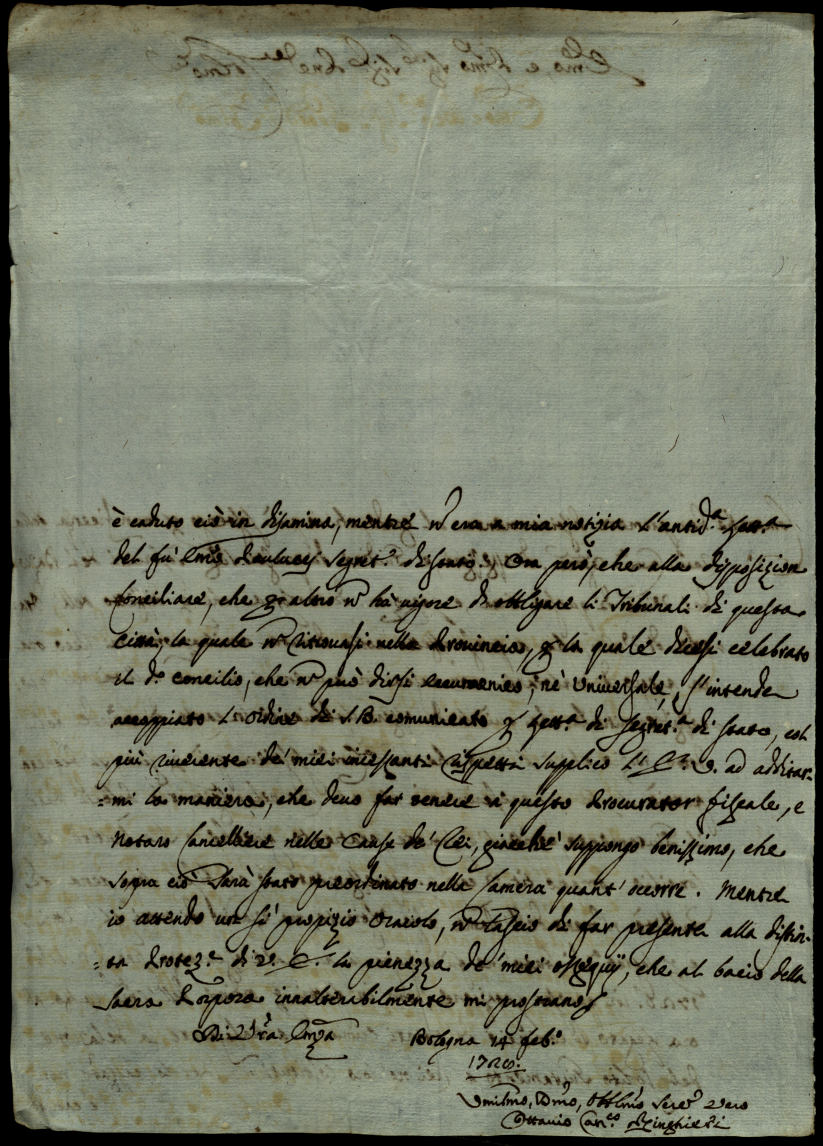 è caduto ciò in disamina, mentre n era a mia notizia l'antid.ª Lett.ª
del fù Emō Paulucci Segret.º di stato; Ora però, che alla disposizion
Conciliare, che altro n hà vigore di obbligare li Tribunali di questa
Città, la quale n ritrovasi nella Provincia, la quale dicesi celebrato
il d.º concilio, che n può dirsi ecumenico, nè universale, s'intende
accoppiato l'ordine di S.B. comunicato Lett.ª di Segret.ª di stato, col
più riverente de' miei incessanti rispetti supplico l'E. V. ad additar-
=mi la maniera, che devo far tenere à questo Procurator fiscale, e
Notaro Cancelliere nelle Cause de' Rei, giacchè suppongo benissimo, che
sopra ciò sarà stato preordinato nella Camera quant' occorre. Mentre
io attendo un sì propizio Oracolo, n lascio di far presente alla distin-
=ta Protez.e di V. E. la pienezza de' miei ossequij, che al bacio della
Sacra Porpora inalterabilmente mi prostrano
Di V'ra Emza
Bologna 14 feb.º
Umilmo, Dmo, Obblmo Serv.e Vero
Ottavio Can.co